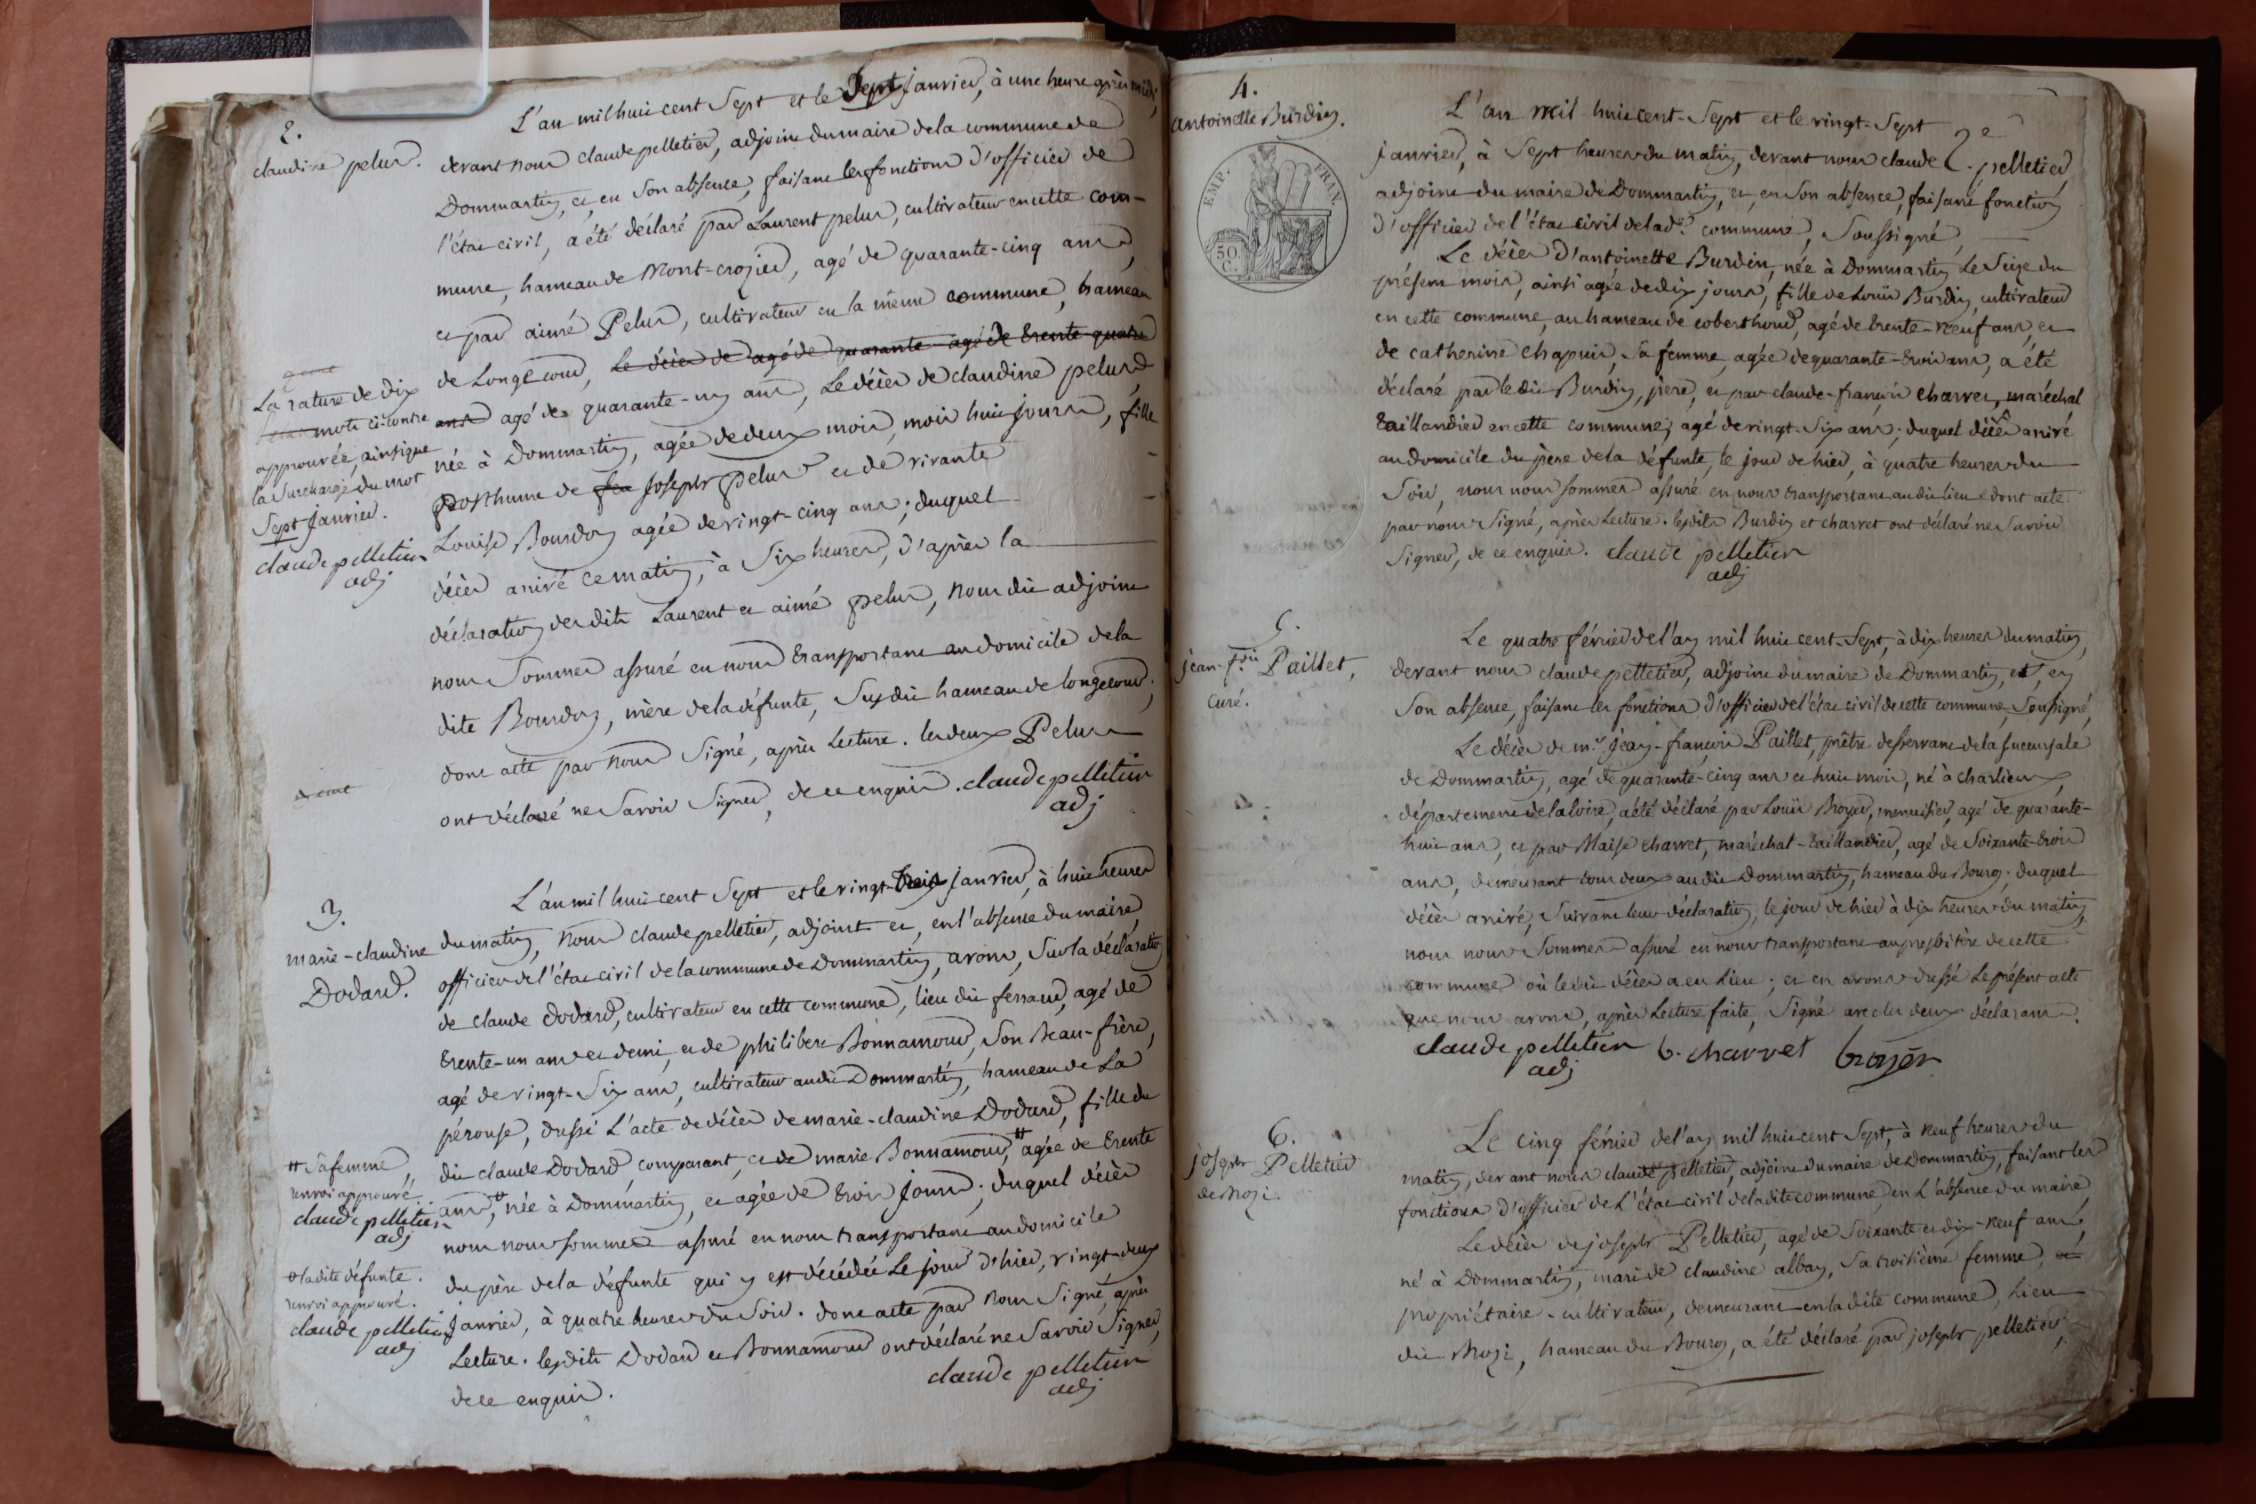 2.
claudine pelus.
L'an mil huit cent Sept et le Sept janvier, à une heure après midi,
devant nous claude pelletier, adjoint du maire de la commune de
Dommartin, et, en Son absence, faisant les fonctions d'officier de
l'état civil, a été déclaré par Laurent pelus, cultivateur en cette com-
mune, hameau de Mont-crozier, agé de quarante-cinq ans,
et par aimé Pelus, cultivateur en la même commune, hameau
de Longecour, Le décès de agé de quarante agé de trente quatre
ans agé de quarante-un ans, Le décès de claudine pelus,
née à Dommartin, agée de deux mois, mois huit jours, fille
posthume de feu joseph pelus et de vivante
Louise Bourdon agée de vingt-cinq ans; duquel
décès arrivé ce matin, à Six heures, d'après la
déclaration des dits Laurent et aimé pelus, Nous dit adjoint
nous Sommes assuré en nous transportant au domicile de la
dite Bourdon, mère de la défunte, Susdit hameau de longecour;
dont acte par Nous Signé, après Lecture. les deux Pelus
ont déclaré ne Savoir Signer, de ce enquis. claude pelletier
adj
La rature de dix
mots ci-contre
approuvée, ainsi que
la Surcharge du mot
Sept janvier.
claude pelletier
adj
3.
marie-claudine
Dodard.
L'an mil huit cent Sept et le vingt-trois janvier, à huit heures
du matin, Nous claude pelletier, adjoint et, en l'absence du maire,
officier de l'état civil de la commune de Dommartin, avons, Sur la déclaration
de claude dodard, cultivateur en cette commune, lieu dit ferraud, agé de
trente-un ans et demi, et de philibert Bonnamour, Son Beau-frère,
agé de vingt-Six ans, cultivateur audit Dommartin, hameau de La
pérouse, dressé L'acte de décès de marie-claudine Dodard, fille du
dit claude Dodard, comparant, et de marie Bonnamour, # agée de trente
ans, # née à Dommartin, et agée de trois jours; duquel décès
nous nous sommes assuré en nous transportant au domicile
du père de la défunte qui y est décédée Le jour d'hier, vingt-deux
janvier, à quatre heures du Soir. dont acte par Nous Signé, après
Lecture. lesdits Dodard et Bonnamour ont déclaré ne Savoir Signer,
de ce enquis.
claude pelletier
adj
# Sa femme,
renvoi approuvé
claude pelletier
adj
# ladite défunte.
renvoi approuvé.
claude pelletier
adj
4.
antoinette Burdin.
EMP. FRAN.
50 C.
2e
L'an mil huit cent-Sept et le vingt-Sept
janvier, à Sept heures du matin, devant nous claude pelletier,
adjoint du maire de Dommartin, et, en Son absence, faisant fonction
d'officier de l'état civil de lad.e commune, Soussigné,
Le décès d'antoinette Burdin, née à Dommartin Le Seize du
présent mois, ainsi agée de dix jours, fille de Louis Burdin, cultivateur
en cette commune, au hameau de coberthoud, agé de trente-neuf ans, et
de catherine chapuis, Sa femme, agée de quarante-trois ans, a été
déclaré par le dit Burdin, père, et par claude-françois charvet, maréchal
taillandier en cette commune, agé de vingt-Six ans; duquel décès arrivé
au domicile du père de la défunte, le jour de hier, à quatre heures du
Soir, nous nous sommes assuré en nous transportant au dit lieu dont acte
par nous Signé, après Lecture. lesdits Burdin et charvet ont déclaré ne Savoir
Signer, de ce enquis. claude pelletier
adj
5.
jean-f.ois Paillet,
curé.
Le quatre février de l'an mil huit cent-Sept, à dix heures du matin,
devant nous claude pelletier, adjoint du maire de Dommartin, et, en
Son absence, faisant les fonctions d'officier de l'état civil de cette commune, Soussigné,
Le décès de m.r jean-françois Paillet, prêtre desservant de la succursale
de Dommartin, agé de quarante-cinq ans et huit mois, né à charlieu,
département de la loire, a été déclaré par Louis Broyer, menuisier, agé de quarante-
huit ans, et par Blaise charvet, maréchal-taillandier, agé de Soixante-trois
ans, demeurant tous deux audit Dommartin, hameau du Bourg; duquel
décès arrivé, Suivant leur déclaration, le jour de hier à dix heures du matin,
nous nous Sommes assuré en nous transportant au presbitère de cette
commune où ledit décès a eu Lieu; et en avons dressé Le présent acte
que nous avons, après Lecture faite, Signé avec les deux déclarants.
claude pelletier b. charvet broyer
adj
6.
joseph Pelletier
de Mozi.
Le cinq février de l'an mil huit cent Sept, à neuf heures du
matin, devant nous claude pelletier, adjoint du maire de Dommartin, faisant les
fonctions d'officier de L'état civil de la dite commune, en L'absence du maire,
Le décès de joseph Pelletier, agé de Soixante et dix-neuf ans,
né à Dommartin, mari de claudine alban, Sa troisième femme, et
propriétaire-cultivateur, demeurant en ladite commune, Lieu
dit Mozi, hameau du Bourg, a été déclaré par joseph pelletier,